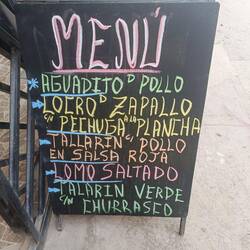 MENÚ
* AGUADITO D POLLO
LOCRO D ZAPALLO
C/N PECHUGA A LA PLANCHA
TALLARIN C/ POLLO
EN SALSA ROJA
LOMO SALTADO
TALARIN VERDE
C/N CHURRASCO